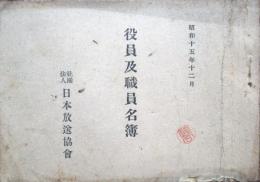 昭和十五年十二月
役員及職員名簿
社團法人 日本放送協會